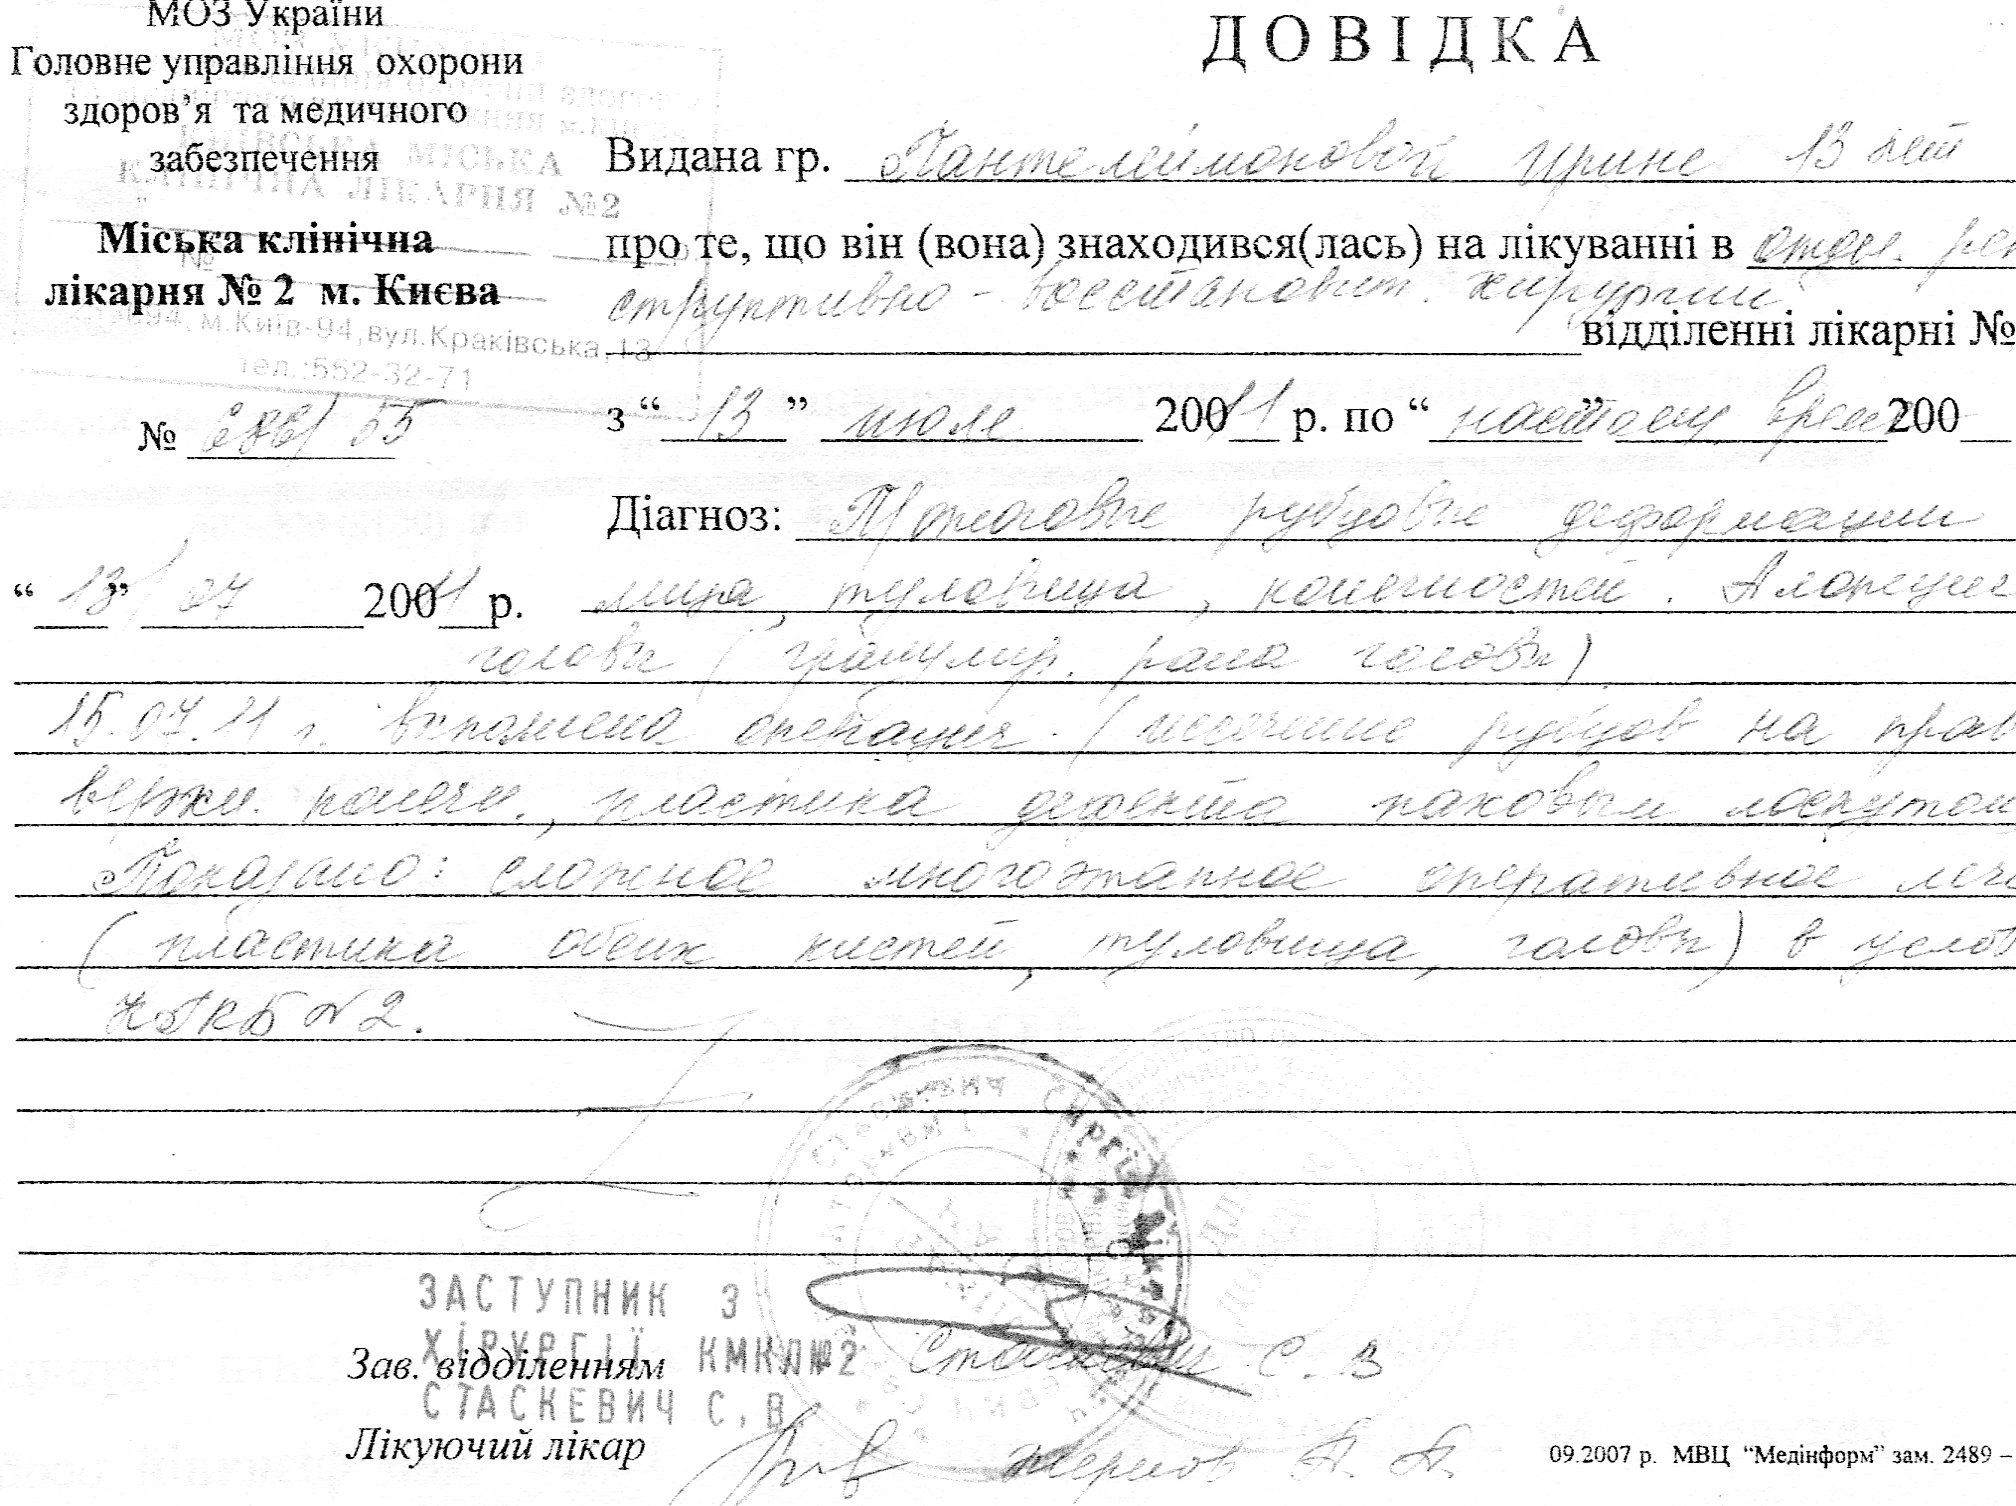 МОЗ України
Головне управління охорони
здоров’я та медичного
забезпечення
КИЇВСЬКА МІСЬКА
КЛІНІЧНА ЛІКАРНЯ №2
Міська клінічна
лікарня № 2 м. Києва
м.Київ-94,вул.Краківська,13
тел.:552-32-71
№ 55
“13” 07 20011 р.
ДОВІДКА
Видана гр. Пантелеймоновой Ирине 13 лет
про те, що він (вона) знаходився(лась) на лікуванні в отдел. рекон
структивно - восстановит. хирургии
відділенні лікарні №
з “13” июля 20011 р. по “настоящ. время” 200
Діагноз: Пожоговые рубцовые деформации
лица, туловища, конечностей. Алопеция
головы (гранулир. рана головы).
15.07.11 г. выполнена операция (иссечение рубцов на прав
верхн. конечн., пластика дефекта паховым лоскутом
Показано: сложное многоэтапное оперативное лече
(пластика обеих кистей, туловища, головы) в услов
КГКБ №2.
ЗАСТУПНИК З
ХІРУРГІЇ КМКЛ№2
СТАСКЕВИЧ С.В.
Зав. відділенням Стаскевич С. В
Лікуючий лікар Жернов А. А.
09.2007 р. МВЦ “Медінформ” зам. 2489 –